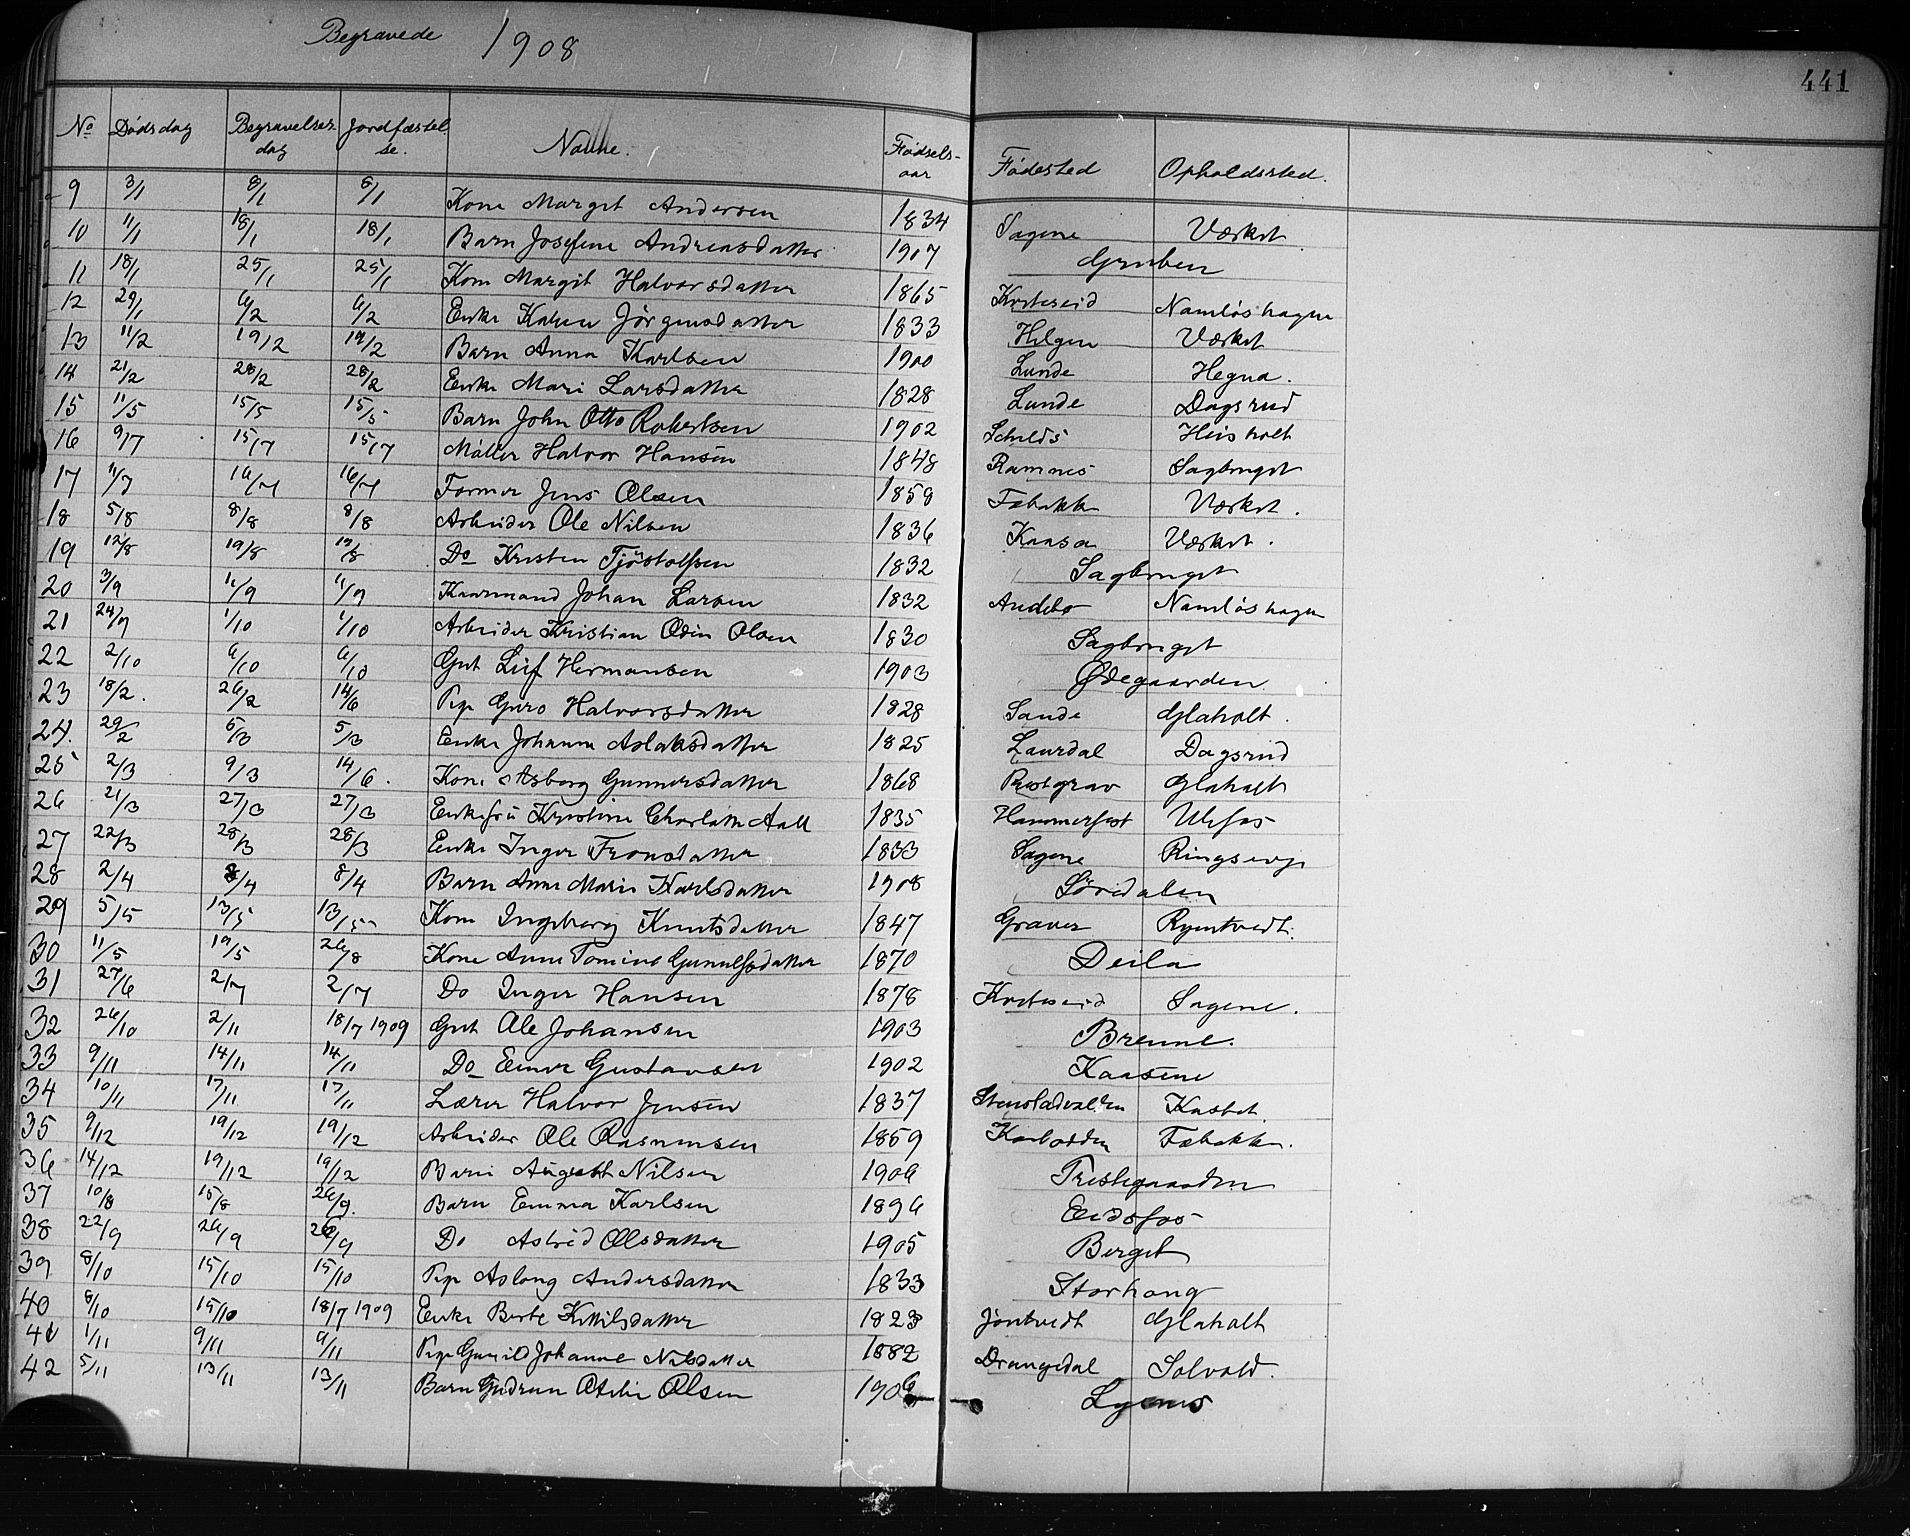 Begravede 1908
441
No Dødsdag Begravelses dag Jordfæstel se. Navne. Fødsels- aar Fødested Opholdssted.
9 3/1 8/1 8/1 Kone Margit Andersen 1834 Sagene Værket
10 11/1 18/1 18/1 Barn Josefine Andreasdatter 1907 Gruben
11 18/1 25/1 25/1 Kone Margit Halvorsdatter 1865 Kviteseid Namløshagen
12 29/1 6/2 6/2 Enke Karen Jörgensdatter 1833 Helgen Værket
13 11/2 19/2 19/2 Barn Anna Karlsen 1900 Lunde Hegna.
14 21/2 28/2 28/2 Enke Mari Larsdatter 1828 Lunde Dagsrud
15 11/5 15/5 15/5 Barn John Otto Robertsen 1902 Heisholt
16 9/7 15/7 15/7 Møller Halvor Hansen 1848 Ramnes Sagbruget
17 11/7 16/7 16/7 Former Jens Olsen 1858 Fæbakke Værket.
18 5/8 8/8 8/8 Arbeider Ole Nilsen 1836 Kaasa Værket.
19 12/8 19/8 19/8 Do Kristen Tjöstolfsen 1832 Sagbruget
20 3/9 11/9 11/9 Kaarmand Johan Larsen 1832 Andebo Namløshagen
21 24/9 1/10 1/10 Arbeider Kristian Odin Olsen 1830 Sagbruget
22 2/10 6/10 6/10 Gut Leif Hermansen 1903 Ødegaarden
23 18/2. 26/2 14/6 Pige Guro Halvorsdatter 1828 Sande Glaholt.
24. 29/2 5/3 5/3 Enke Johanne Aslaksdatter 1825 Laurdal Dagsrud
25 2/3 9/3 14/6. Kone Asborg Gunnersdatter 1868 Rostgrav Glaholt
26 21/3 27/3 27/3 Enkefru Kristine Charlotte Aall 1835 Hammerfest Ulefos
27 22/3 28/3 28/3 Enke Inger Fransdatter 1833 Sagene Ringsevje
28 2/4 8/4 8/4 Barn Anne Marie Karlsdatter 1908 Söredalen
29 5/5 13/5 13/5 Kone Ingeborg Knutsdatter 1847 Graver Ryntvedt.
30 11/5 19/5 26/8 Kone Anne Tomine Gunnulfsdatter 1870 Deila
31 27/6 2/7 2/7 Do Inger Hansen 1878 Kviteseid Sagene.
32 26/10 2/11 18/7 1909 Gut Ole Johansen 1903 Brenne.
33 9/11 14/11 14/11 Do Einar Gustavsen 1902 Kaasene
34 10/11 17/11 17/11 Lærer Halvor Jensen 1837 Stenstadvalden Kastet.
35 9/12 19/12 19/12 Arbeider Ole Rasmussen 1859 Kaebodden Fæbakke.
36 14/12 19/12 19/12 Barn August Nilsen 1906 Prestegaarden
37 10/8 15/8 26/9. Barn Emma Karlsen 1896 Eidsfos
38 22/9 26/9 26/9 Do Astrid Olsdatter 1905 Berget
39 8/10 15/10 15/10 Pige Aslaug Andersdatter 1833 Storhaug
40 8/10 15/10 18/7 1909 Enke Berte Kittilsdatter 1823 Jöntvedt Glaholt
41 1/11 9/11 9/11 Pige Gunild Johanne Nilsdatter 1882 Drangedal Solvold.
42 5/11 13/11 13/11 Barn Gudrun Otilie Olsen 1906